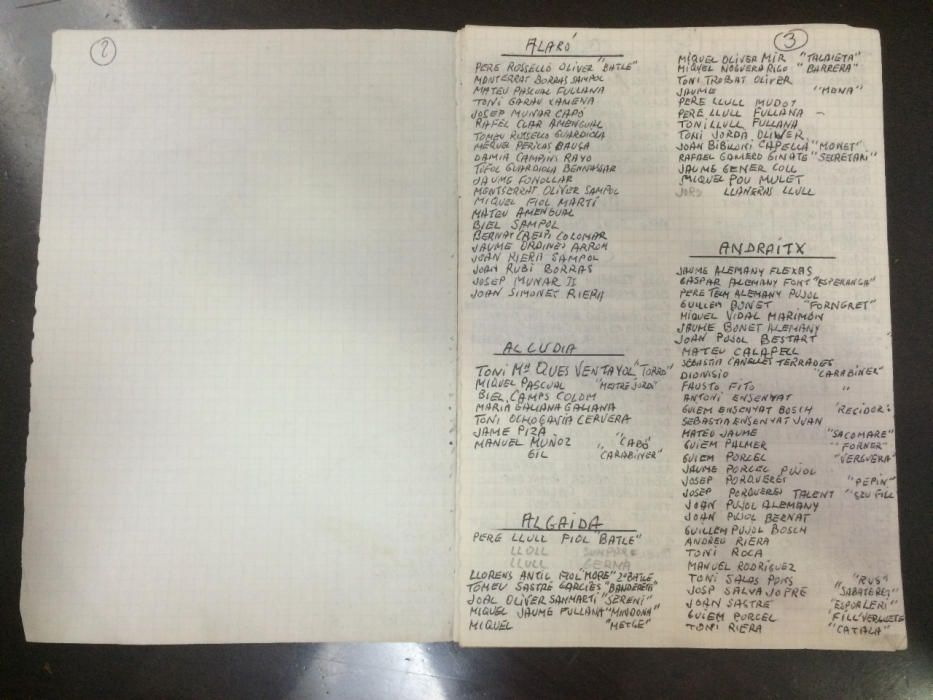 2
ALARÓ
PERE ROSSELLÓ OLIVER "BATLE"
MONTERRAT BORRAS SAMPOL
MATEU PASCUAL FULLANA
TONI GARAU XAMENA
JOSEP MUNAR CAPÓ
RAFEL CLAR AMENGUAL
TOMEU ROSSELLO GUARDIOLA
MEQUEL PERICAS BAUÇA
DAMIA CAMPINS RAYO
TOFOL GUARDIOLA BENNASSAR
JAUME FONOLLAR
MONTSERRAT OLIVER SAMPOL
MIQUEL FIOL MARTÍ
MATEU AMENGUAL
BIEL SAMPOL
BERNAT CRESPI COLOMAR
JAUME ORDINES ARROM
JOAN RIERA SAMPOL
JOAN RUBÍ BORRAS
JOSEP MUNAR
JOAN SIMONET RIERA
ALCUDIA
TONI Mª QUES VENTAYOL "TORRÓ"
MIQUEL PASCUAL "MESTRE JORDI"
BIEL CAMPS COLOM
MARIA GALIANA GALIANA
TONI OCHOGAVIA CERVERA
JAME PIZA
MANUEL MUÑOZ "CABÓ"
GIL "CARABINER"
ALGAIDA
PERE LLULL FIOL BATLE"
LLULL
LLULL
LLORENS ANTIC FIOL "MORE" 2º BATLE
TOMEU SASTRE GARCIES "BANDERETA"
JOAL OLIVER SANMARTI "SERENI"
MIQUEL JAUME FULLANA "MINDONA"
MIQUEL "METGE"
3
MIQUEL OLIVER MIR "TALAIETA"
MIQUEL NOGUERA RIGO "BARRERA"
TONI TROBAT OLIVER
JAUME "MENA"
PERE LLULL MUDOT
PERE LLULL FULLANA
TONI LLULL FULLANA
TONI JORDA OLIVER
JOAN BIBILONI CAPELLA "MONET"
RAFAEL GAMERO GINATE "SECRETARI"
JAUME GENER COLL
MIQUEL POU MULET
LLANERAS LLULL
ANDRAITX
JAUME ALEMANY FLEXAS
GASPAR ALEMANY FONT "ESPERANÇA"
PERE TEM ALEMANY PUJOL
GUILLEM BONET "FORNGRET"
MIQUEL VIDAL MARIMON
JAUME BONET ALEMANY
JOAN PUJOL BESTART
MATEU CALAFELL
SEBASTIA CANELLES TERRADES
DIONISIO "CARABINER"
FAUSTO FITO "
ANTONI ENSENYAT
GUIEM ENSENYAT BOSCH "REGIDOR"
SEBASTIA ENSENYAT JUAN
MATEU JAUME "SACOMARE"
GUIEM PALMER "FORNER"
GUIEM PORCEL "VERGUERA"
JAUME PORCEL PUJOL
JOSEP PORQUERES "PEPIN"
JOSEP PORQUERES TALENT "SEU FILL
JOAN PUJOL ALEMANY
JOAN PUJOL BERNAT
GUILLEM PUJOL BOSCH
ANDREU RIERA
TONI ROCA
MANUEL RODRIGUEZ
TONI SALAS PONS "RUS"
JOSP SALVA JOFRE "SABATERET"
JOAN SASTRE "ESPORLERI"
GUIEM PORCEL "FILL VERGUETE
TONI RIERA "CATIALA"